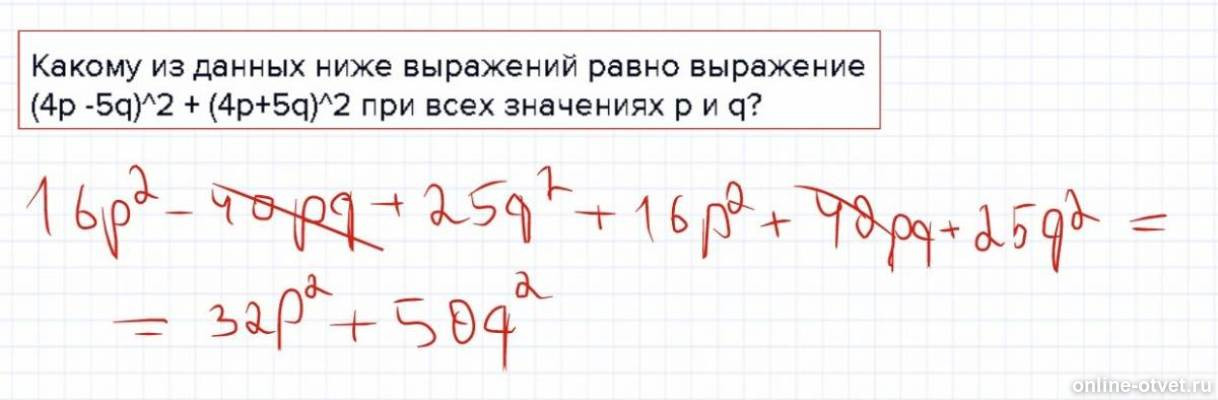 Какому из данных ниже выражений равно выражение
(4p -5q)^2 + (4p+5q)^2 при всех значениях p и q?
16p² - 40pq + 25q² + 16p² + 40pq + 25q² =
= 32p² + 50q²
online-otvet.ru